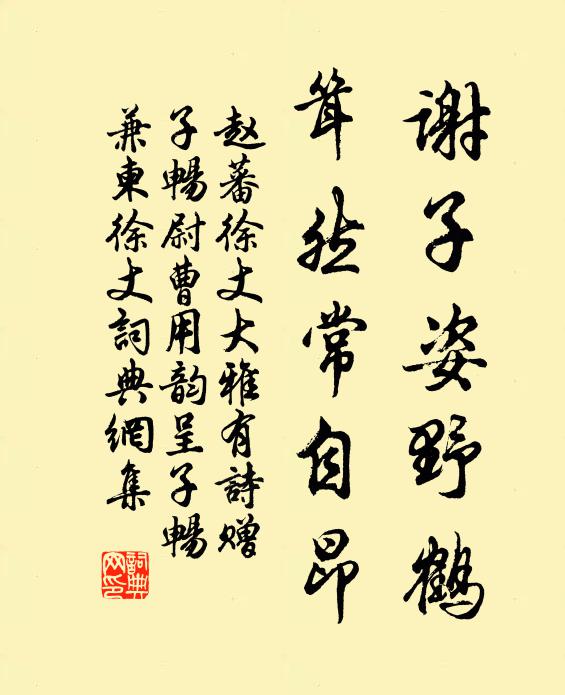 謝子姿野鶴
耸然常自昂
赵蕃徐丈大雅有詩赠
子暢尉曹用韵呈子暢
兼東徐丈詞典網集
詞典网印